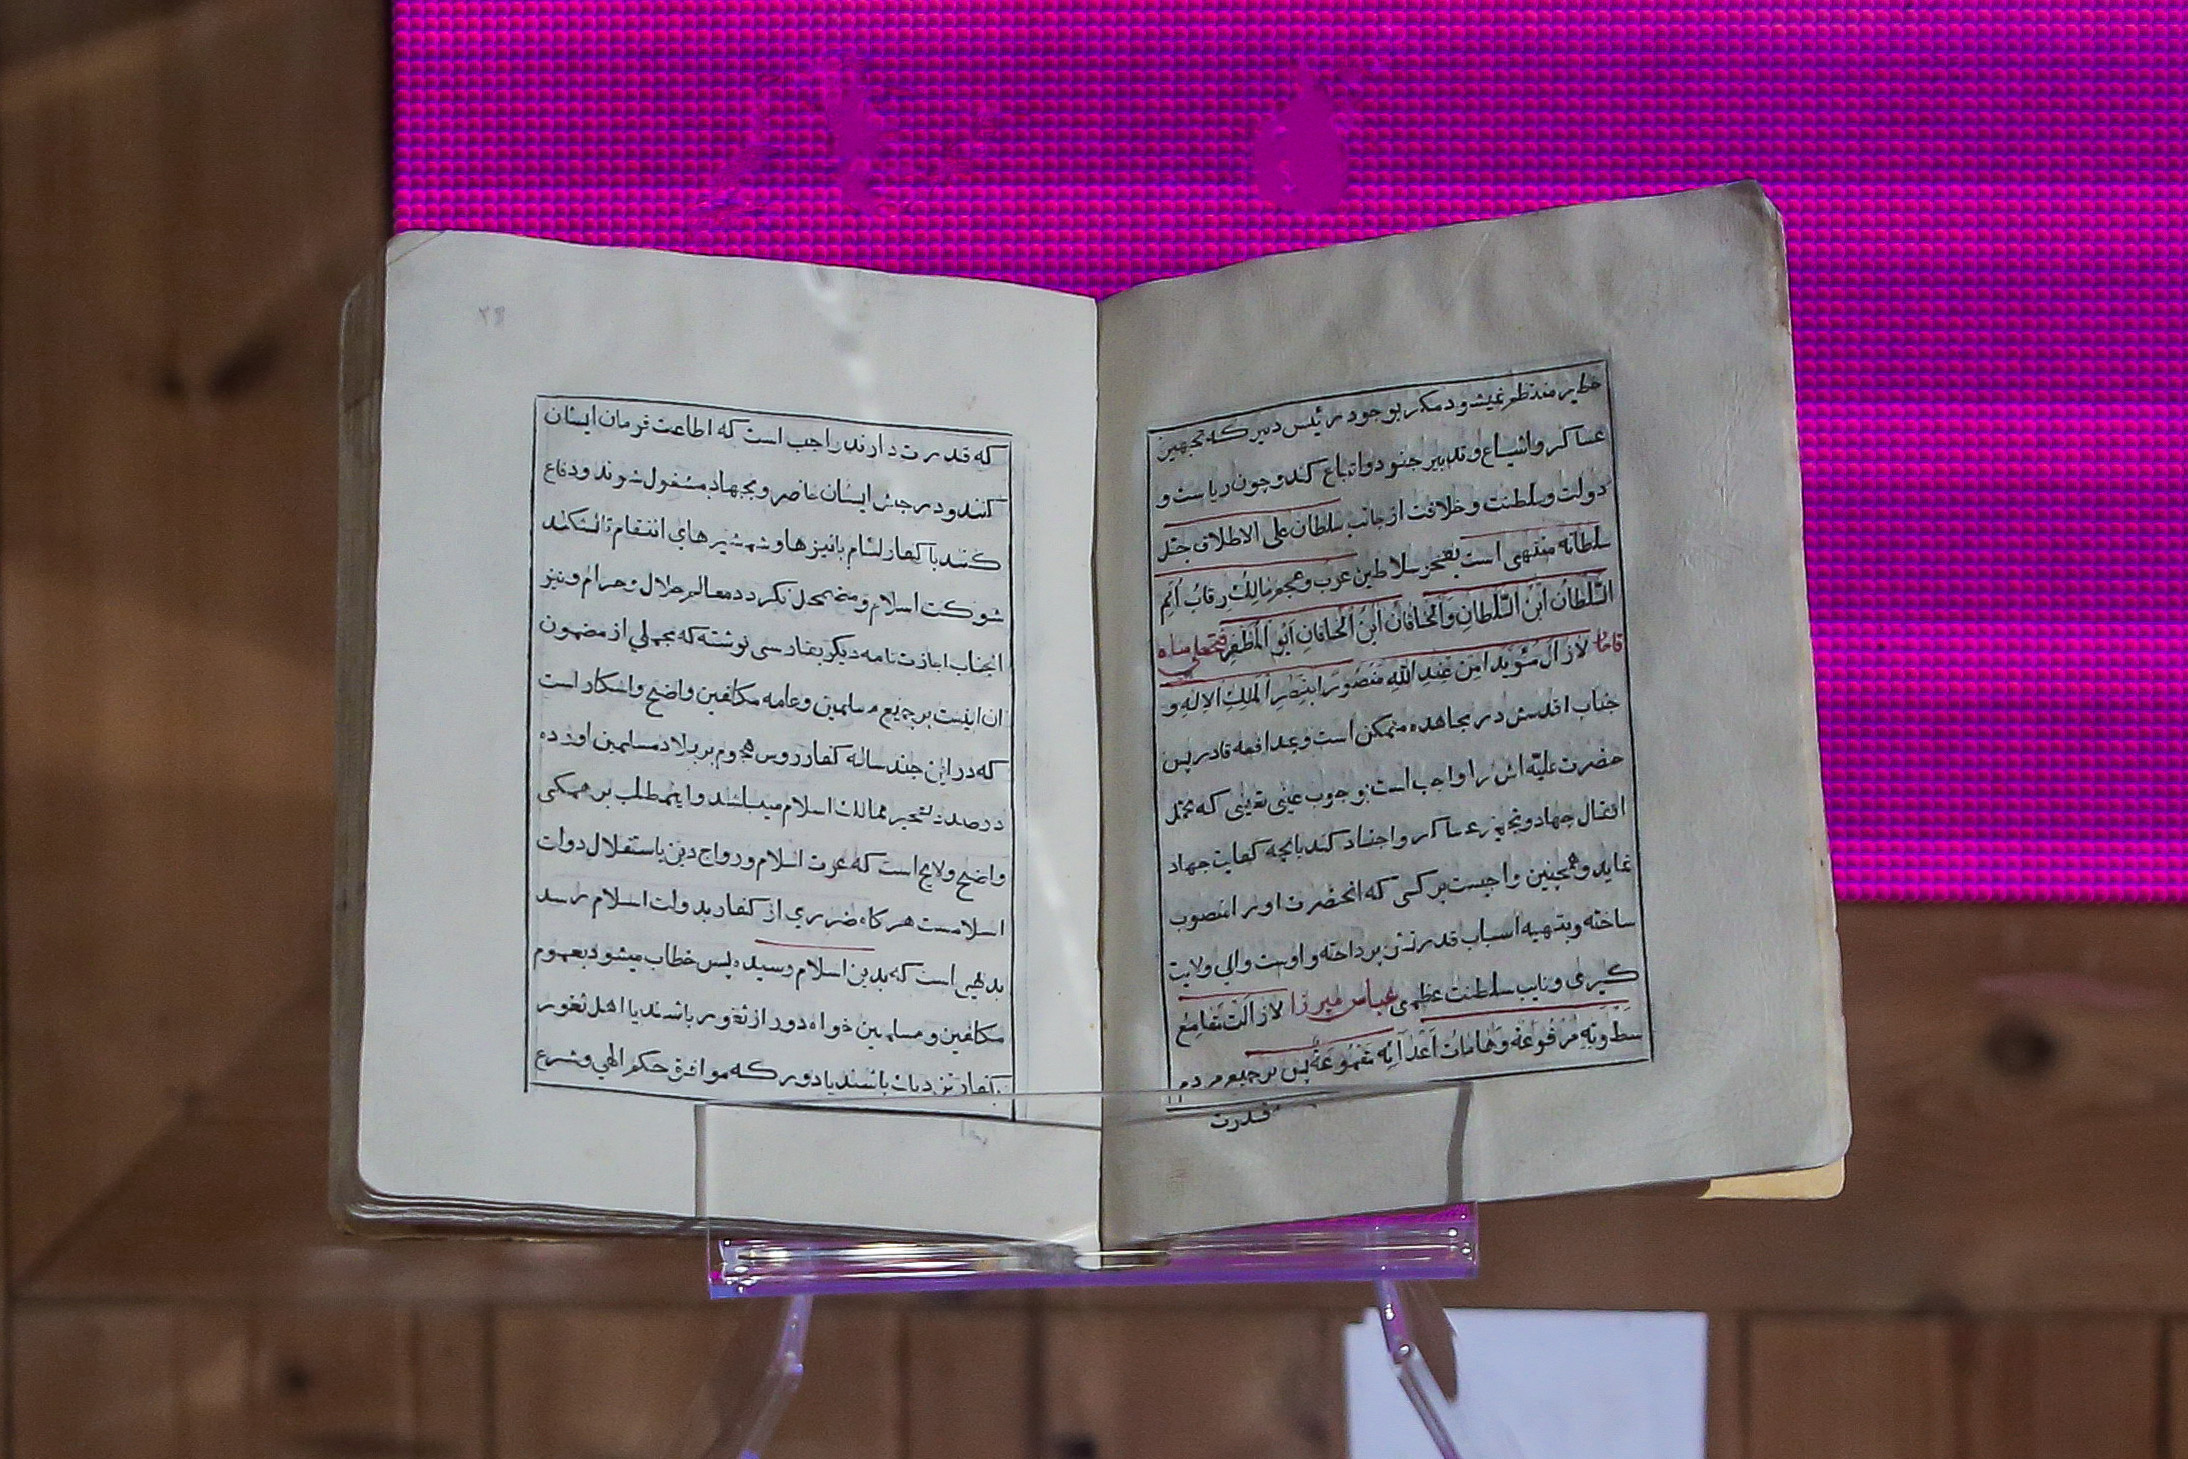 خطیر منتظم نمیشود مگر بوجود رئیس دبیر که تجهیز
عساکر و اشیاع و تدبیر جنود و اتباع کند و چون ریاست و
دولت و سلطنت و خلافت از جانب سلطان علی الاطلاق جلّ
سلطانه منتهی است بفخر سلاطین عرب و عجم مالك رقاب اُمَم
السّلطان ابن السّلطان والخاقان ابن الخاقان ابو المظفر فتحعلی شاه
قاجار لازال مؤیدا من عِندِ اللّهِ منصورا بنصر الملك الاله و
جناب اقدسش در مجاهده متمکن است و بمدافعه قادر پس
حضرت علیّه اش را واجب است بوجوب عینی تعیینی که محمل
اثقال جهاد و تجهیز عساکر و اجناد کند بانچه کفایت جهاد
نماید و همچنین واجبست بر کسی که انحضرت او را منصوب
ساخته و بتهیه اسباب قدرتش پرداخته و اوست والی ولایت
گیری و نایب سلطنت عظمی عباس میرزا لازالت
سطوته مرفوعة وهامات اعدائه مقموعة پس بر جمیع مردم
قدرت
که قدرت دارند واجب است که اطاعت فرمان ایشان
کنند و در جیش ایشان حاضر و بجهاد مشغول شوند و دفاع
کنند با کفار لئام بانیزها و شمشیرهای انتقام تا نشکند
شوکت اسلام و مضمحل نگردد معالم حلال و حرام و نیز
انجناب اجازت نامه دیگر بفارسی نوشته که مجملی از مضمون
ان اینست بر جمیع مسلمین و عامه مکلفین واضح و اشکار است
که در این چند ساله کفار روس هجوم بر بلاد مسلمین اورده
در صدد تسخیر ممالك اسلام میباشند و اینمطلب بر همگی
واضح و لایح است که عزت اسلام و رواج دین باستقلال دولت
اسلامست هر گاه ضرری از کفار بدولت اسلام رسد
بدیهی است که بدین اسلام رسیده پس خطاب میشود بعموم
مکلفین و مسلمین خواه دور از ثغور باشند یا اهل ثغور
بکفار نزدیك باشند یا دور که موافق حکم الهی و شرع